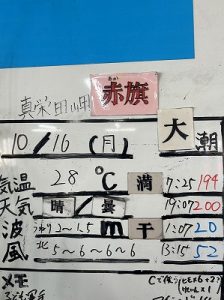 真栄田岬 赤旗
10/16(月) 大潮
気温 28℃ 満 7:25 194
天気 晴/曇 19:07 200
波 1.5 m 干 1:07 20
風 北 5~6~6~6 13:15 52
メモ